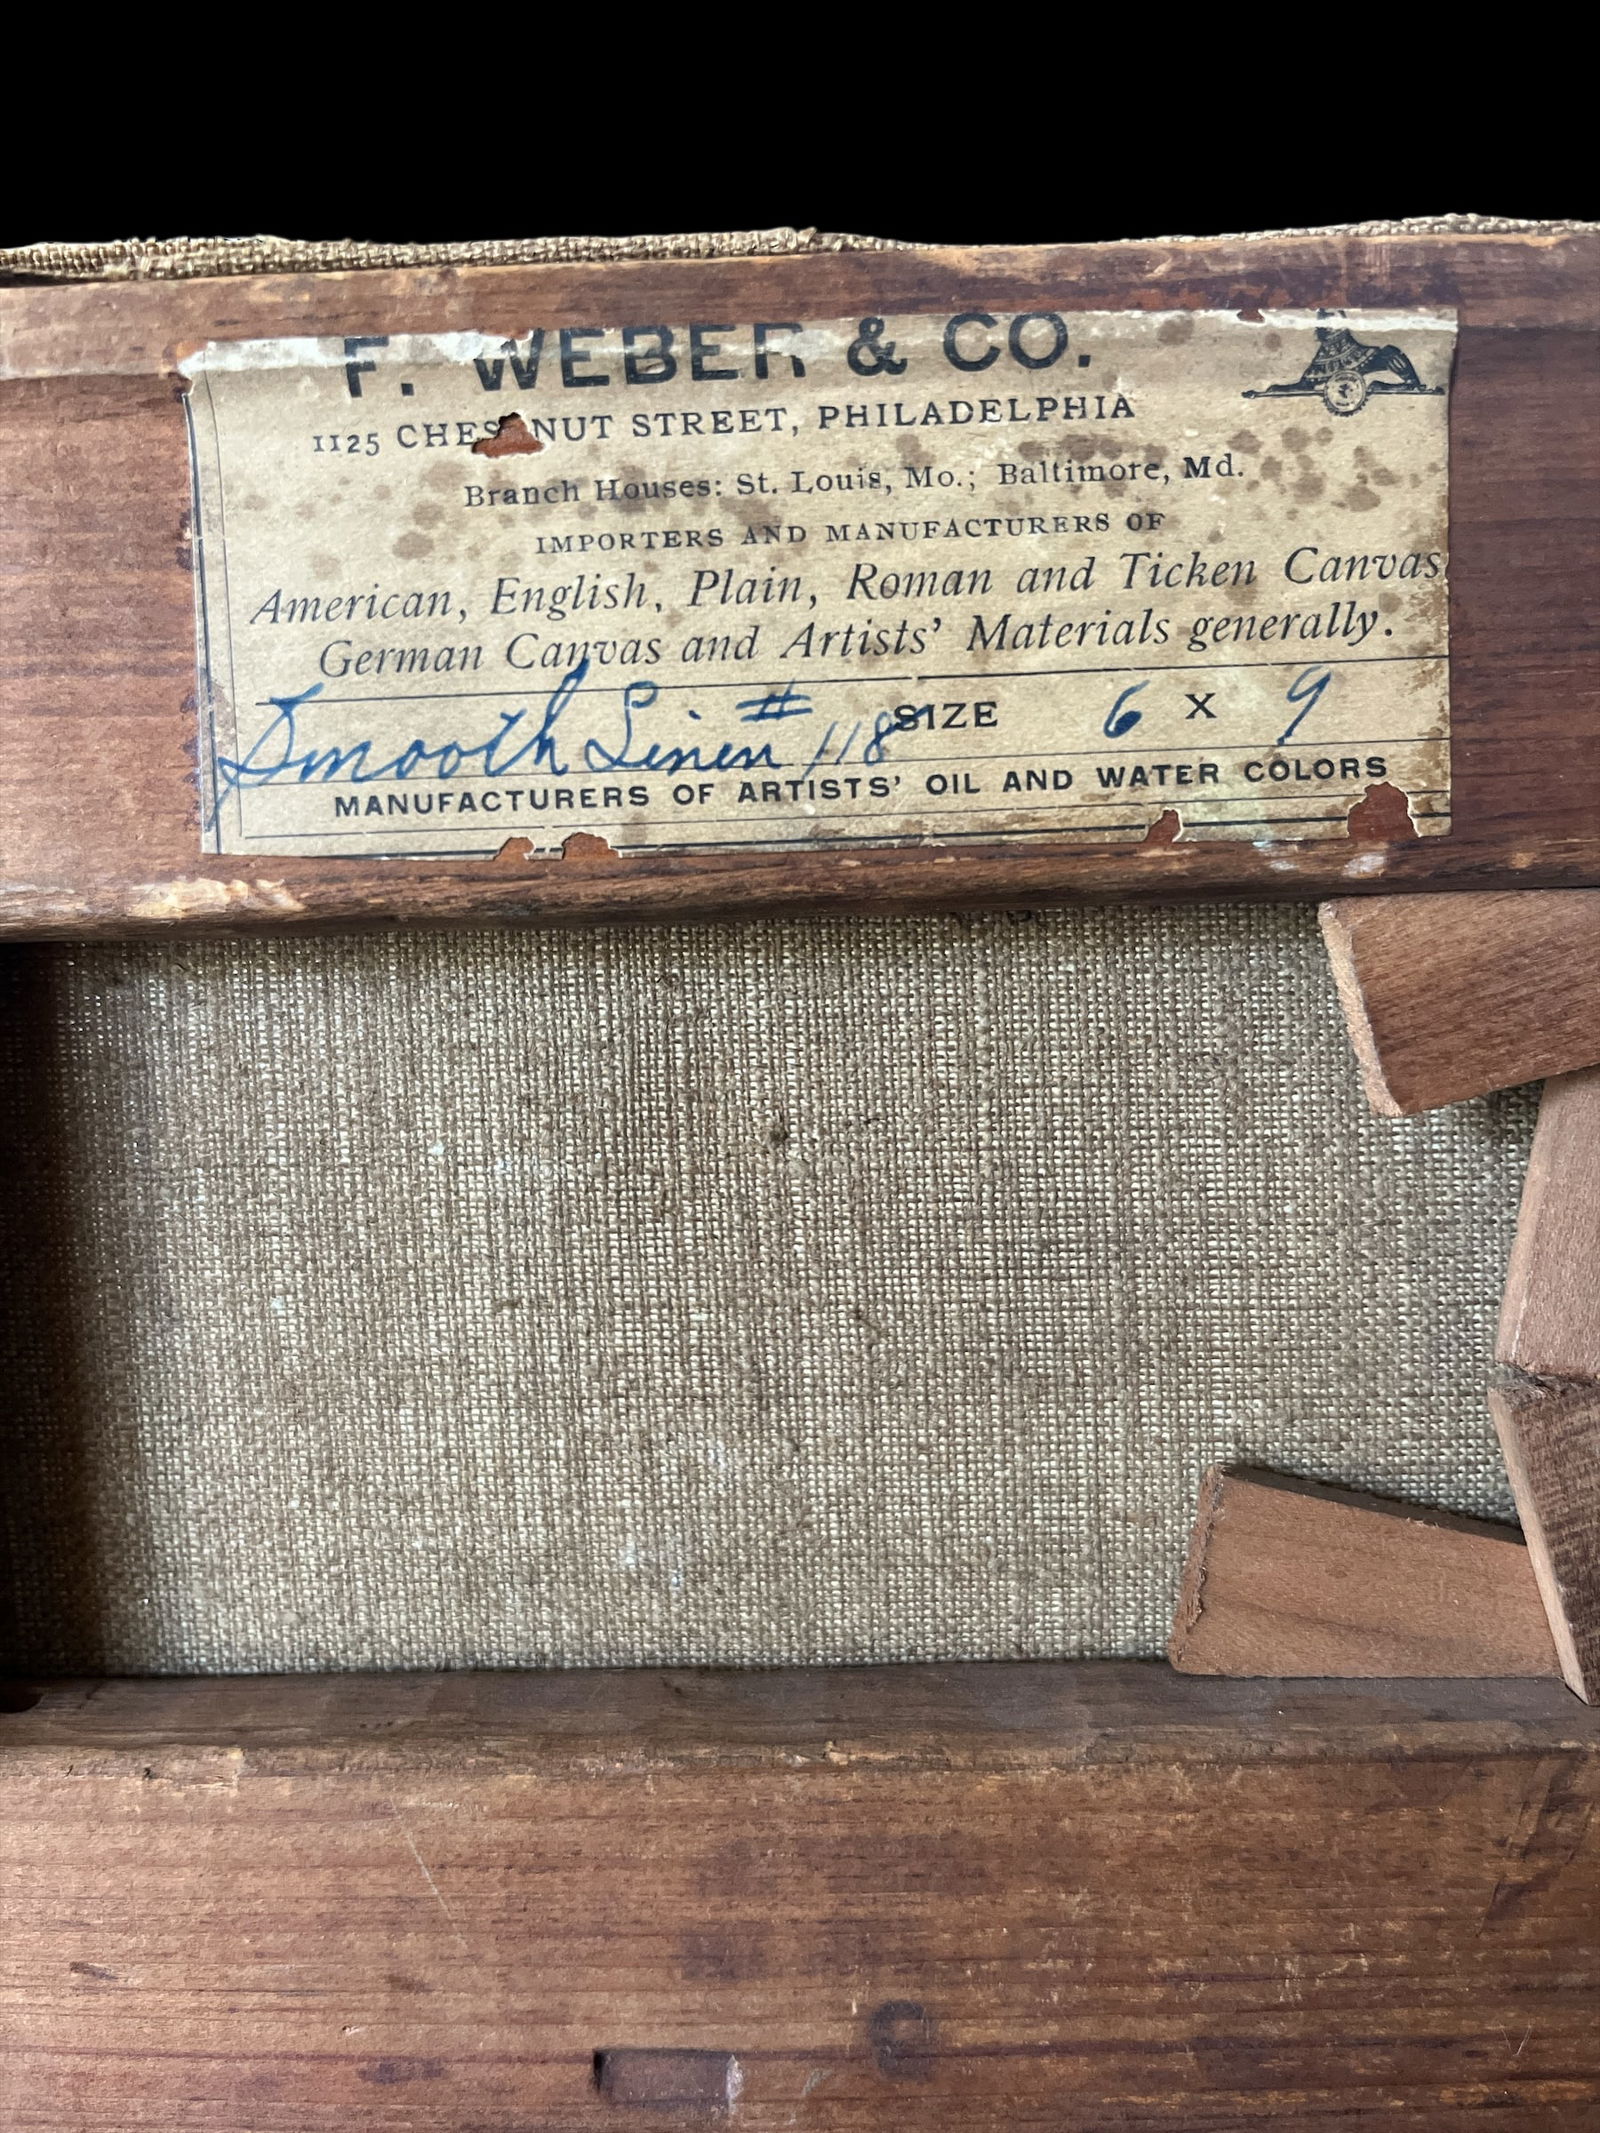 F. WEBER & CO.
1125 CHESTNUT STREET, PHILADELPHIA
Branch Houses: St. Louis, Mo.; Baltimore, Md.
IMPORTERS AND MANUFACTURERS OF
American, English, Plain, Roman and Ticken Canvas
German Canvas and Artists' Materials generally.
Smooth Linen # 118 SIZE 6 X 9
MANUFACTURERS OF ARTISTS' OIL AND WATER COLORS